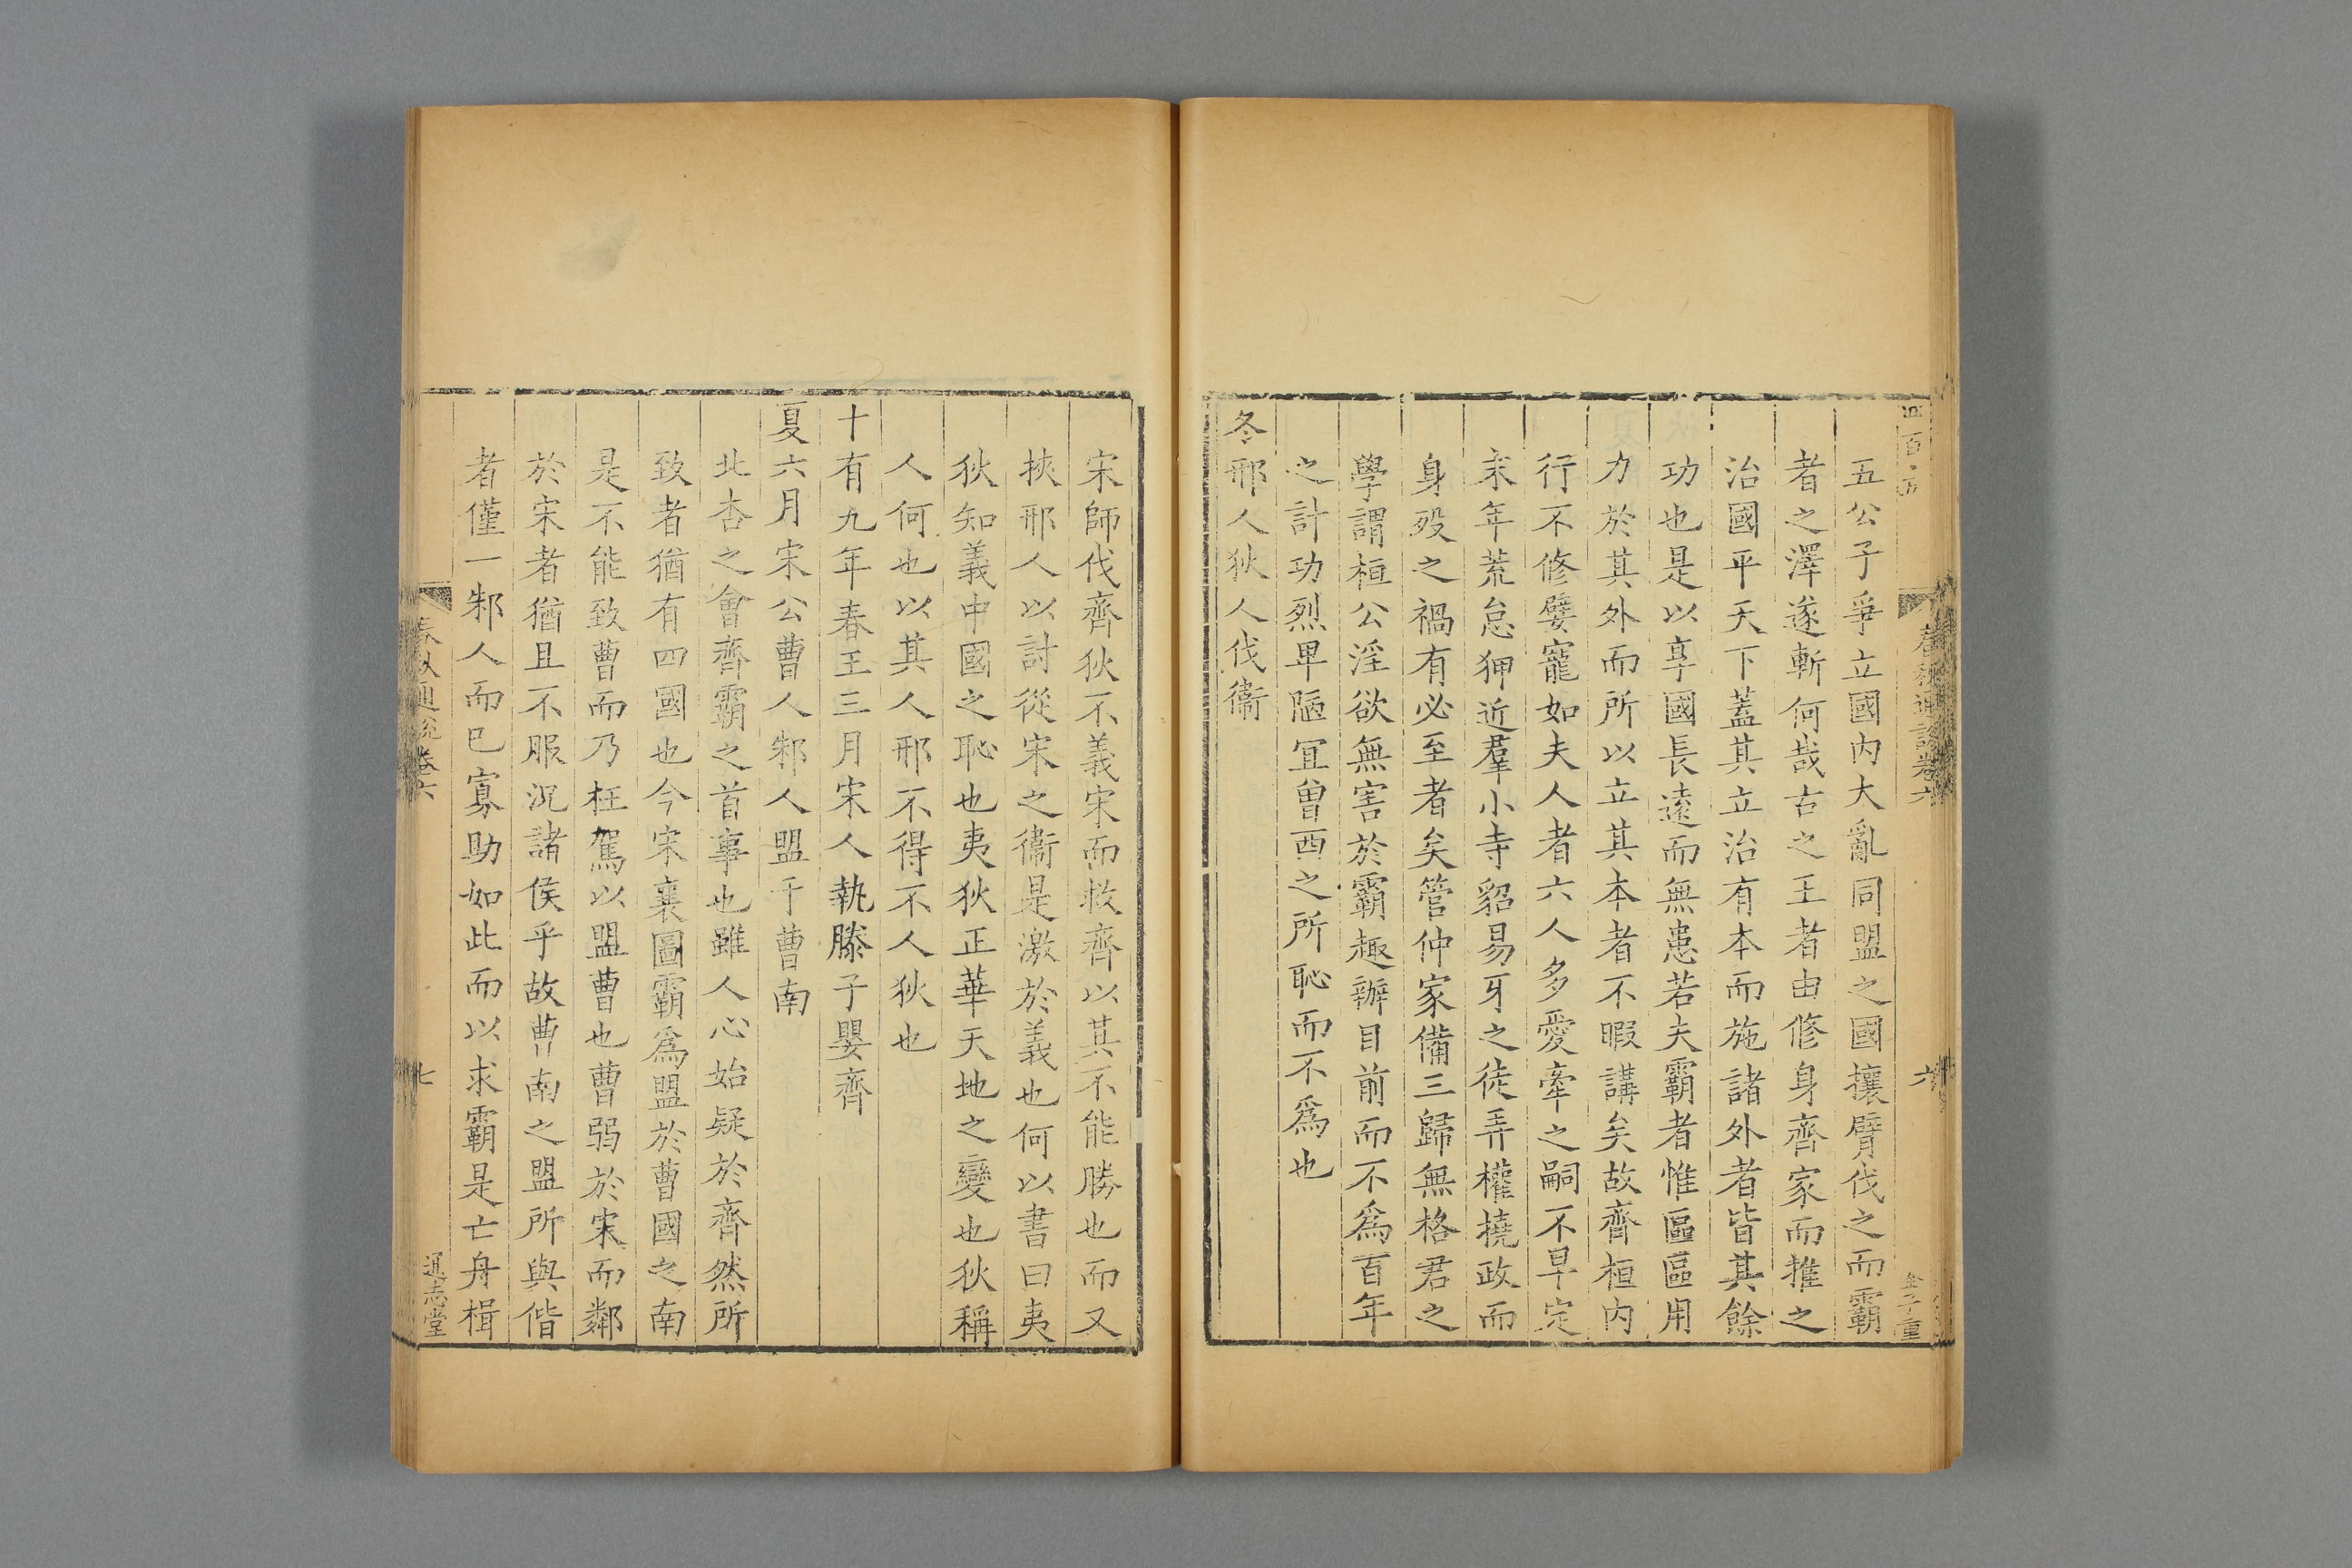 五公子爭立國內大亂同盟之國攘臂伐之而霸
者之澤遂斬何哉古之王者由修身齊家而推之
治國平天下蓋其立治有本而施諸外者皆其餘
功也是以享國長遠而無患若夫霸者惟區區用
力於其外而所以立其本者不暇講矣故齊桓内
行不修嬖寵如夫人者六人多愛牽之嗣不早定
末年荒怠狎近羣小寺貂易牙之徒弄權撓政而
身歿之禍有必至者矣管仲家備三歸無格君之
學謂桓公淫欲無害於霸趣辦目前而不爲百年
之計功烈卑陋宜曾西之所恥而不爲也
冬邢人狄人伐衞
春秋通說卷六
六
宋師伐齊狄不義宋而救齊以其不能勝也而又
挾邢人以討從宋之衞是激於義也何以書曰夷
狄知義中國之恥也夷狄正華天地之變也狄稱
人何也以其人邢不得不人狄也
十有九年春王三月宋人執滕子嬰齊
夏六月宋公曹人邾人盟于曹南
北杏之會齊霸之首事也雖人心始疑於齊然所
致者猶有四國也今宋襄圖霸爲盟於曹國之南
是不能致曹而乃枉駕以盟曹也曹弱於宋而鄰
於宋者猶且不服況諸侯乎故曹南之盟所與偕
者僅一邾人而已寡助如此而以求霸是亡舟楫
春秋通說卷六
七
通志堂